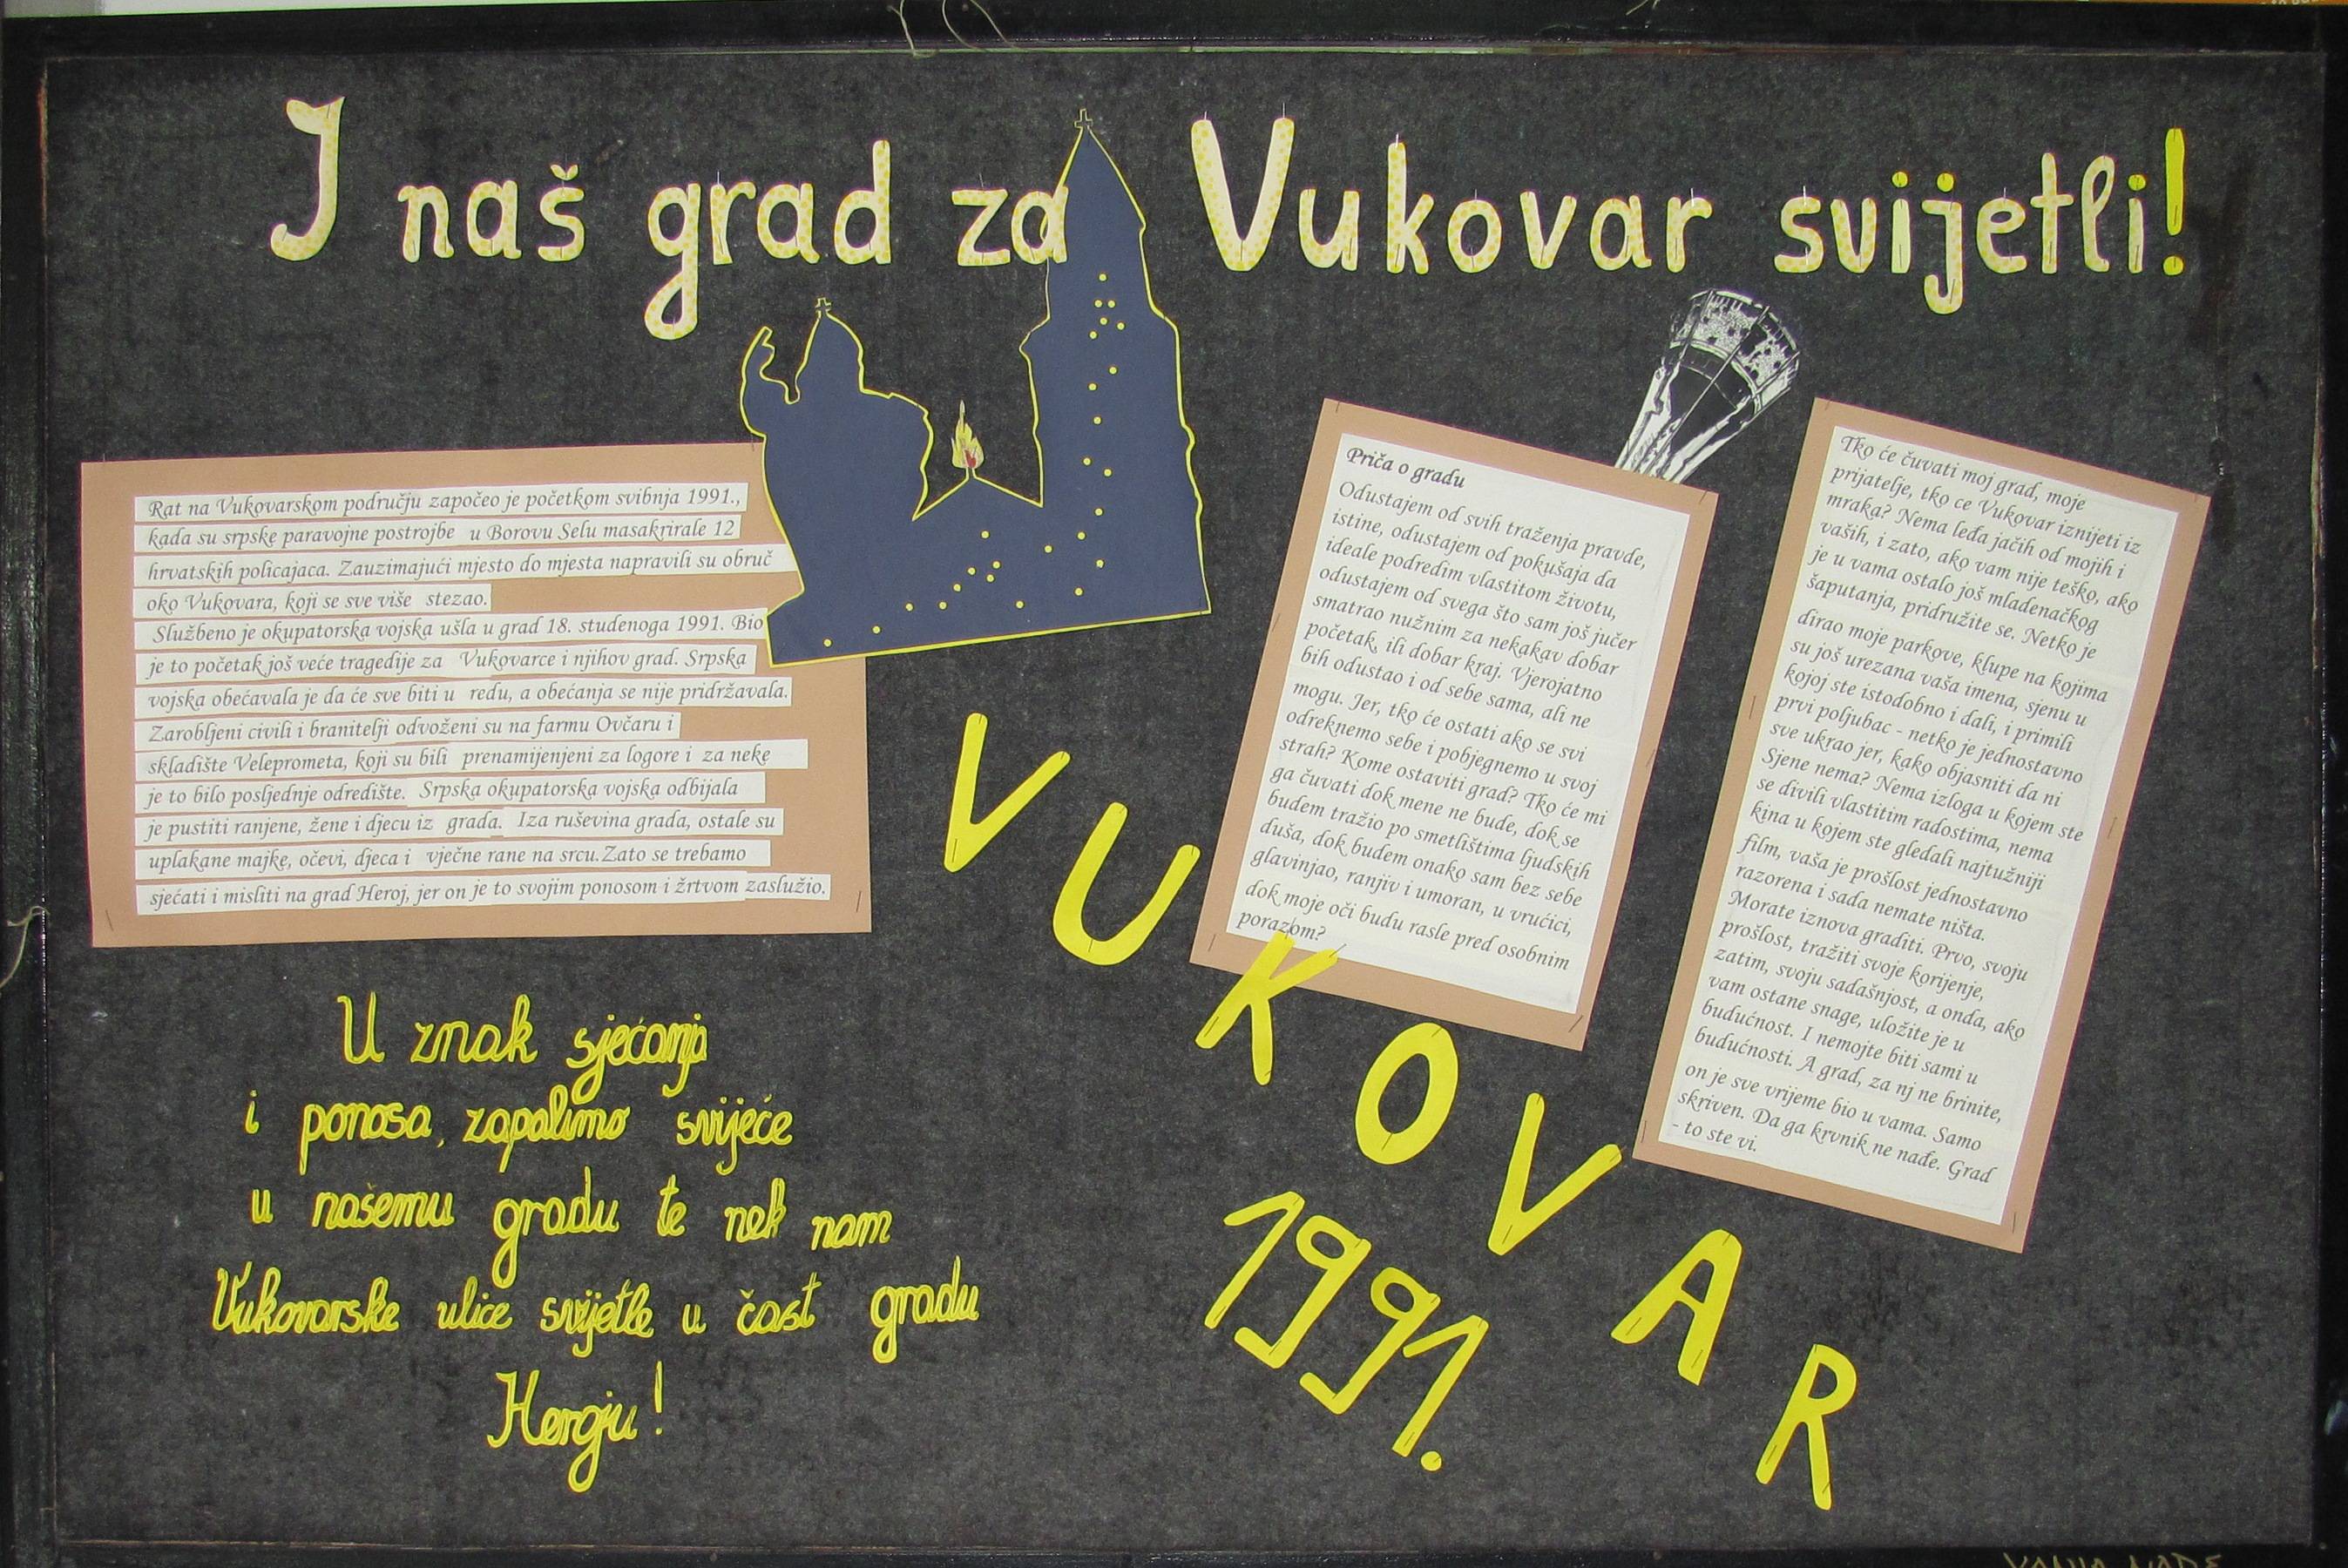 I naš grad za Vukovar svijetli!
Rat na Vukovarskom području započeo je početkom svibnja 1991.,
kada su srpske paravojne postrojbe u Borovu Selu masakrirale 12
hrvatskih policajaca. Zauzimajući mjesto do mjesta napravili su obruč
oko Vukovara, koji se sve više stezao.
Službeno je okupatorska vojska ušla u grad 18. studenoga 1991. Bio
je to početak još veće tragedije za Vukovarce i njihov grad. Srpska
vojska obećavala je da će sve biti u redu, a obećanja se nije pridržavala.
Zarobljeni civili i branitelji odvoženi su na farmu Ovčaru i
skladište Veleprometa, koji su bili prenamijenjeni za logore i za neke
je to bilo posljednje odredište. Srpska okupatorska vojska odbijala
je pustiti ranjene, žene i djecu iz grada. Iza ruševina grada, ostale su
uplakane majke, očevi, djeca i vječne rane na srcu.Zato se trebamo
sjećati i misliti na grad Heroj, jer on je to svojim ponosom i žrtvom zaslužio.
Priča o gradu
Odustajem od svih traženja pravde,
istine, odustajem od pokušaja da
ideale podredim vlastitom životu,
odustajem od svega što sam još jučer
smatrao nužnim za nekakav dobar
početak, ili dobar kraj. Vjerojatno
bih odustao i od sebe sama, ali ne
mogu. Jer, tko će ostati ako se svi
odreknemo sebe i pobjegnemo u svoj
strah? Kome ostaviti grad? Tko će mi
ga čuvati dok mene ne bude, dok se
budem tražio po smetlištima ljudskih
duša, dok budem onako sam bez sebe
glavinjao, ranjiv i umoran, u vrućici,
dok moje oči budu rasle pred osobnim
porazom?
Tko će čuvati moj grad, moje
prijatelje, tko ce Vukovar iznijeti iz
mraka? Nema leđa jačih od mojih i
vaših, i zato, ako vam nije teško, ako
je u vama ostalo još mladenačkog
šaputanja, pridružite se. Netko je
dirao moje parkove, klupe na kojima
su još urezana vaša imena, sjenu u
kojoj ste istodobno i dali, i primili
prvi poljubac - netko je jednostavno
sve ukrao jer, kako objasniti da ni
Sjene nema? Nema izloga u kojem ste
se divili vlastitim radostima, nema
kina u kojem ste gledali najtužniji
film, vaša je prošlost jednostavno
razorena i sada nemate ništa.
Morate iznova graditi. Prvo, svoju
prošlost, tražiti svoje korijenje,
zatim, svoju sadašnjost, a onda, ako
vam ostane snage, uložite je u
budućnost. I nemojte biti sami u
budućnosti. A grad, za nj ne brinite,
on je sve vrijeme bio u vama. Samo
skriven. Da ga krvnik ne nađe. Grad
- to ste vi.
VUKOVAR
1991.
U znak sjećanja
i ponosa, zapalimo svijeće
u našemu gradu te nek nam
Vukovarske ulice svijetle u čast gradu
Heroju!